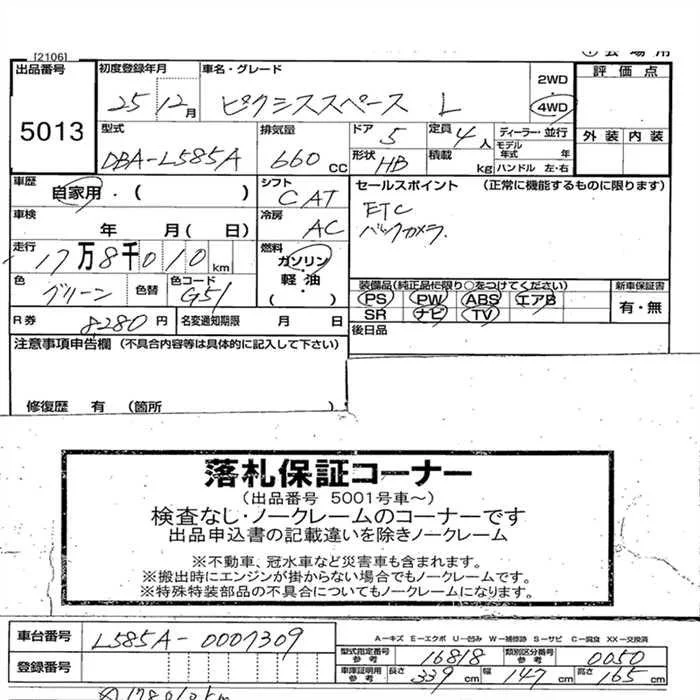 [2106]
出品番号 初度登録年月 車名・グレード 2WD 評価点
5013 25 12月 ピクシススペース L 4WD
型式 排気量 ドア 5 定員 4人 ディーラー・並行 外装 内装
DBA-L585A 660cc 形状 HB 積載 kg モデル年式 年 ハンドル 左・右
車歴 自家用・( ) シフト CAT セールスポイント (正常に機能するものに限ります)
車検 年 月( 日) 冷房 AC ETC
バックカメラ
走行 17万8千010km 燃料 ガソリン・軽油・( )
色 グリーン 色替 色コード G51
装備品(純正品に限り○をつけてください) 新車保証書
PS PW ABS エアB 有・無
SR ナビ TV
R券 8280円 名変通知期限 月 日 後日品
注意事項申告欄(不具合内容等は具体的に記入して下さい)
修復歴 有 (箇所 )
落札保証コーナー
(出品番号 5001号車~)
検査なし・ノークレームのコーナーです
出品申込書の記載違いを除きノークレーム
※不動車、冠水車など災害車も含まれます。
※搬出時にエンジンが掛からない場合でもノークレームです。
※特殊特装部品の不具合についてもノークレームになります。
車台番号 L585A-0007309 A-キズ E-エクボ U-凹み W-補修跡 S-サビ C-腐食 XX-交換済
型式指定番号 参考 16818 類別区分番号 参考 0050
登録番号 車庫証明用 参考 長さ 339cm 幅 147cm 高さ 165cm